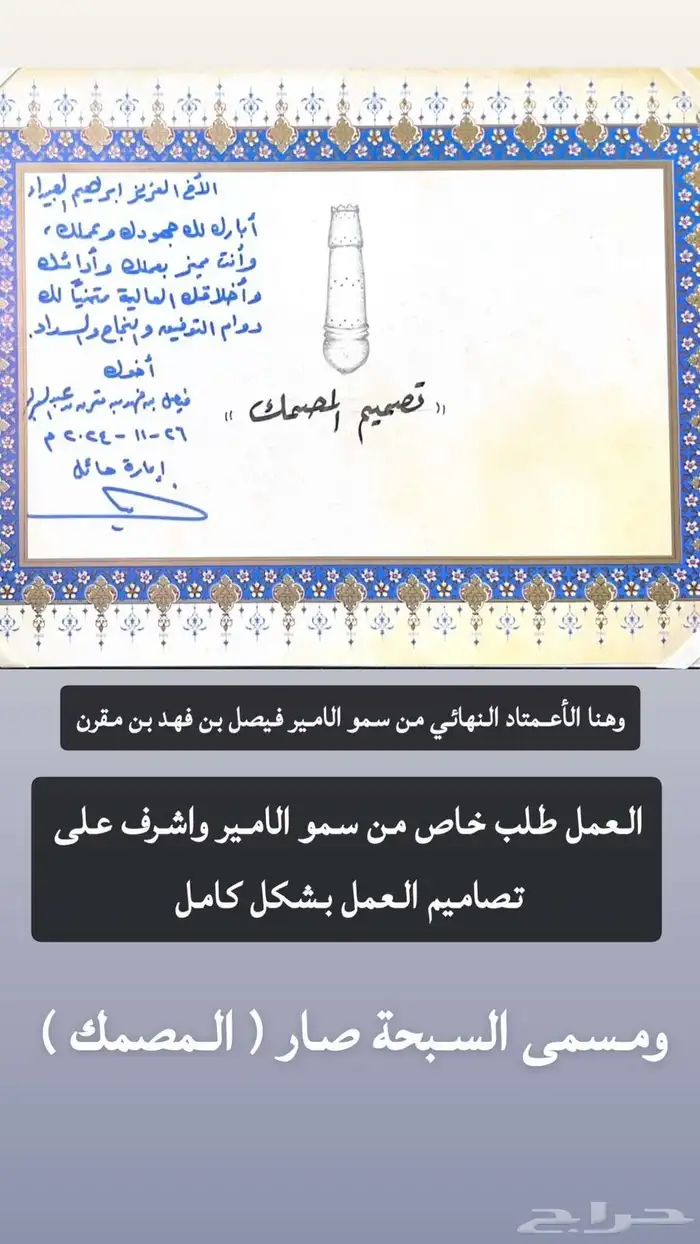 الأخ العزيز ابراهيم
أبارك لك جهودك وعملك،
وأنت مميز بعملك وأدائك
وأخلاقك العالية متمنياً لك
دوام التوفيق والنجاح والسداد.
أخوك
فيصل بن فهد بن مقرن بن
٢٦-١١-٢٠٢٤ م
إمارة حائل
« تصميم المصمك »
وهنا الأعمتاد النهائي من سمو الامير فيصل بن فهد بن مقرن
العمل طلب خاص من سمو الامير واشرف على
تصاميم العمل بشكل كامل
ومسمى السبحة صار ( المصمك )
حراج